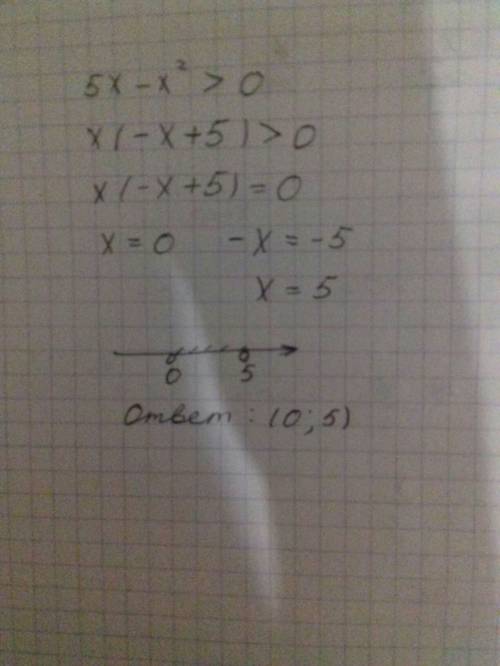 5x - x² > 0
x(-x+5) > 0
x(-x+5) = 0
x = 0 -x = -5
x = 5
0 5
Ответ: (0; 5)